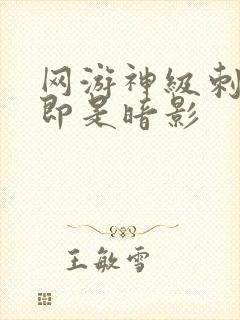 网游神级刺
即是暗影
王敏雪